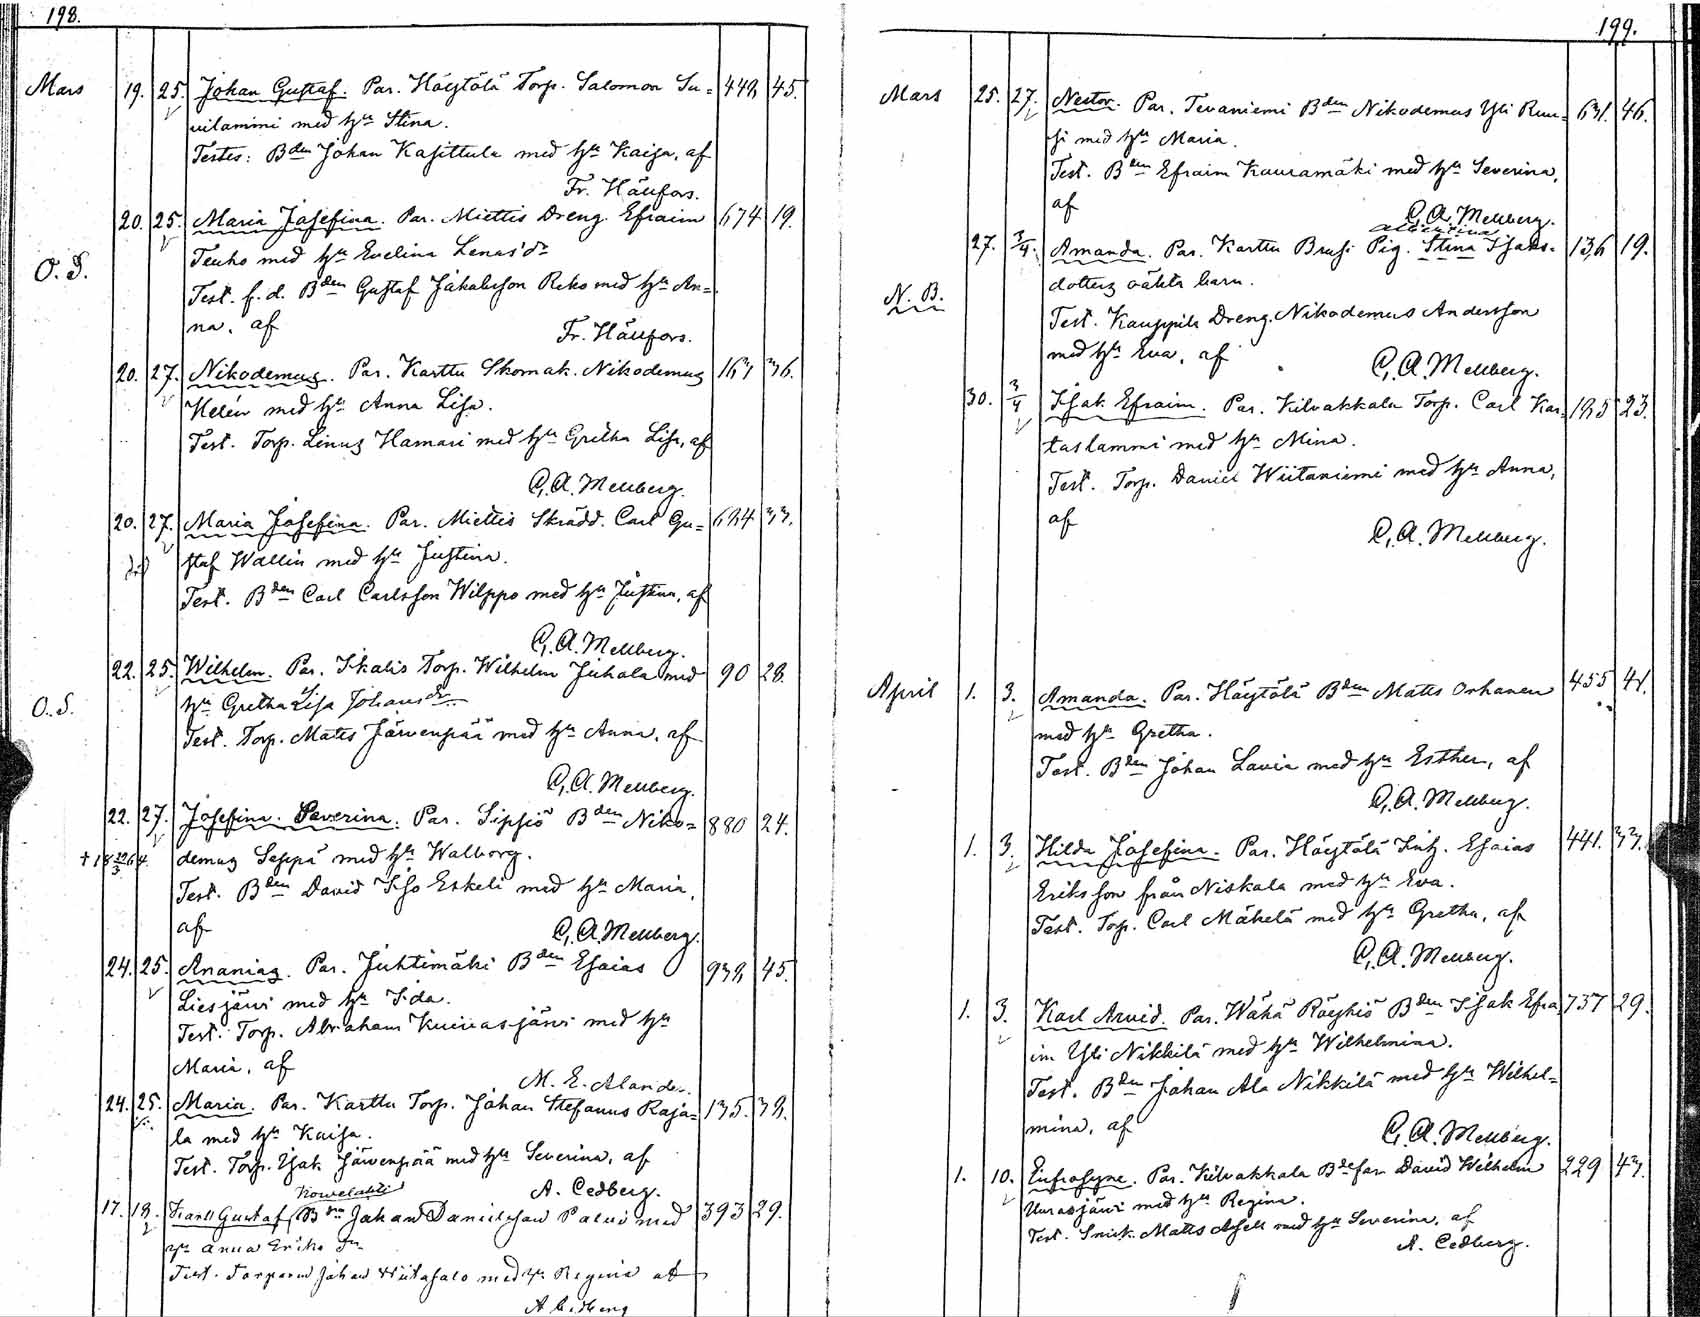 198.
Mars 19. 25. Johan Gustaf. Par. Höytölä Torp. Salomon Su= 442 45.
vilammi med hu Stina.
Testes: Bden Johan Kasittula med hu Kaisa, af
Fr. Hällfors.
20. 25. Maria Josefina. Par. Miettis Dreng. Efraim 674 19.
O. S. Teuho med hu Evelina Lenasdr
Test. f. d. Bden Gustaf Jakobsson Reko med hu An=
na, af
Fr. Hällfors.
20. 27. Nikodemus. Par. Karttu Skomak. Nikodemus 36.
Helén med hu Anna Lisa.
Test. Torp. Linus Hamari med hu Gretha Lisa, af
C. A. Mellberg.
20. 27. Maria Josefina. Par. Miettis Skrädd. Carl Gu= 33.
staf Wallin med hu Justina.
Test. Bden Carl Carlsson Wilppo med hu Justina, af
C. A. Mellberg.
22. 25. Wilhelm. Par. Ikalis Torp. Wilhelm Juhola med 90 28.
O. S. hu Gretha Lisa Johansdr
Test. Torp. Matts Järvenpää med hu Anna, af
C. A. Mellberg.
22. 27. Josefina Severina. Par. Sipsiö Bden Niko= 880 24.
† 18 29/3 64. demus Seppä med hu Walborg.
Test. Bden David Iso Eskeli med hu Maria,
af
C. A. Mellberg.
24. 25. Ananias. Par. Juhtimäki Bden Esaias 932 45.
Liesjärvi med hu Ida.
Test. Torp. Abraham Kuivasjärvi med hu
Maria, af
M. E. Alander.
24. 25. Maria. Par. Karttu Torp. Johan Stefanus Raja= 135. 32.
la med hu Kaisa.
Test. Torp. Isak Järvenpää med hu Severina, af
A. Cedberg.
Kowelahti
17. 18. Karl Gustaf Bden Johan Danielsson Palvi med 393 29.
hu Anna Eriks dr
Test. Torparen Johan Wiitasalo med hu Regina af
A Cedberg
199.
Mars 25. 27. Nestor. Par. Tevaniemi Bden Nikodemus Yli Ruu= 631. 46.
si med hu Maria.
Test. Bden Efraim Kauramäki med hu Severina,
af
C. A. Mellberg.
Albertina
27. 3/4. Amanda. Par. Karttu Brusi Pig. Stina Isaks= 136 19.
N. B. dotters oäkta barn.
Test. Kauppila Dreng. Nikodemus Andersson
med hu Eva, af
C. A. Mellberg.
30. 3/4 Isak Efraim. Par. Kilvakkala Torp. Carl Kar= 195 23.
taslammi med hu Mina.
Test. Torp. Daniel Wiitaniemi med hu Anna,
af
C. A. Mellberg.
April 1. 3. Amanda. Par. Höytölä Bden Matts Orhanen 455 41.
med hu Gretha.
Test. Bden Johan Lavia med hu Esther, af
C. A. Mellberg.
1. 3. Hilda Josefina. Par. Höytölä Inh. Esaias 441. 33.
Eriksson från Niskala med hu Eva.
Test. Torp. Carl Mäkelä med hu Gretha, af
C. A. Mellberg.
1. 3. Karl Arvid. Par. Wähä Röyhiö Bden Isak Efra 737 29.
im Yli Nikkilä med hu Wilhelmina.
Test. Bden Johan Ala Nikkilä med hu Wilhel=
mina, af
C. A. Mellberg.
1. 10. Eufrosyne. Par. Kilvakkala Bdefar David Wilhelm 229 43.
Uurasjärvi med hu Regina.
Test. Snick. Matts Asell med hu Severina, af
A. Cedberg.